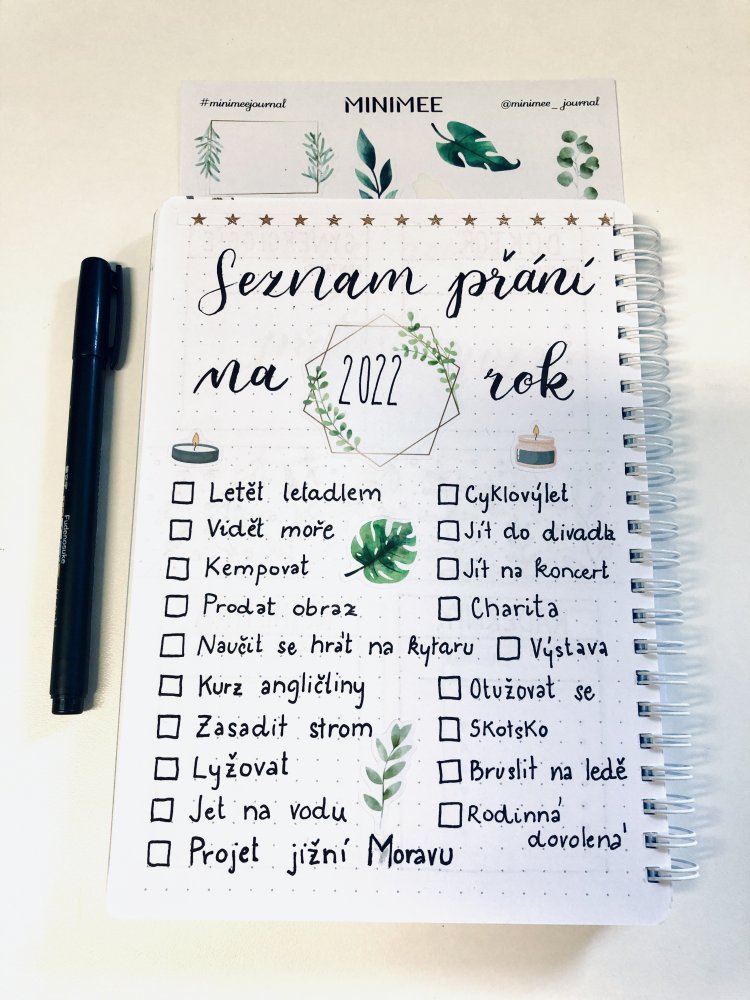 #minimeejournal MINIMEE @minimee_journal
Seznam přání
na 2022 rok
Letět letadlem
Vidět moře
Kempovat
Prodat obraz
Naučit se hrát na kytaru
Kurz angličtiny
Zasadit strom
Lyžovat
Jet na vodu
Projet jižní Moravu
Cyklovýlet
Jít do divadla
Jít na koncert
Charita
Výstava
Otužovat se
Skotsko
Bruslit na ledě
Rodinná
dovolená
Fudenosuke